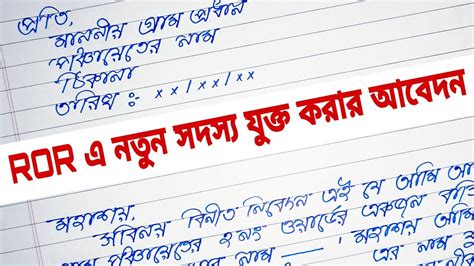 প্রতি,
মাননীয় গ্রাম প্রধান
পঞ্চায়েতের নাম
ঠিকানা
তারিখ :- xx/xx/xx
ROR এ নতুন সদস্য যুক্ত করার আবেদন
মহাশয়,
সবিনয় বিনীত নিবেদন এই যে আমি আপ
পঞ্চায়েতের ২ নং ওয়ার্ডের একজন
নাম মহাশয় আমার